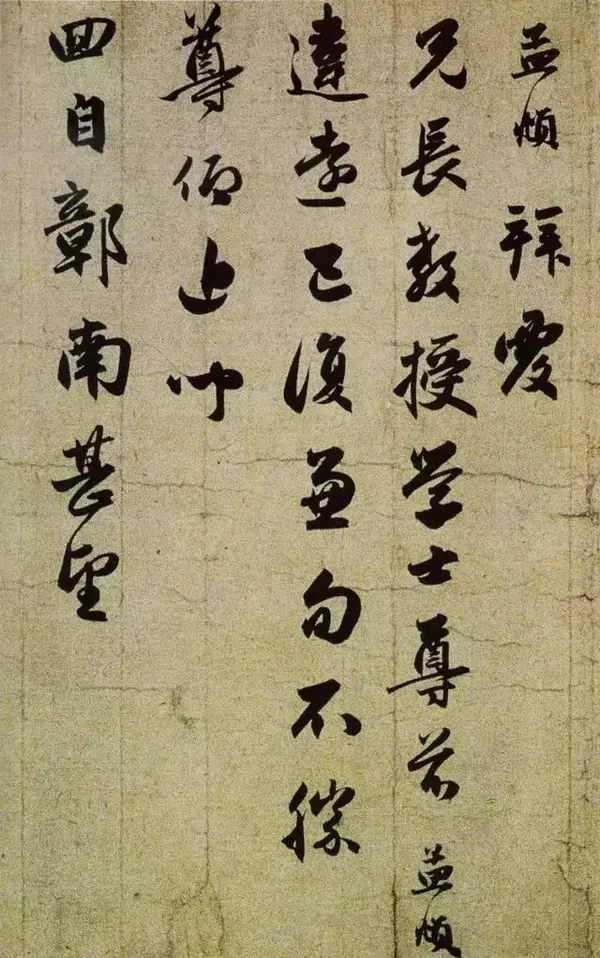 孟頫拜覆
兄長教授学士尊前孟頫
違遠已復兼旬不勝
尊仰
回自鄣南甚望